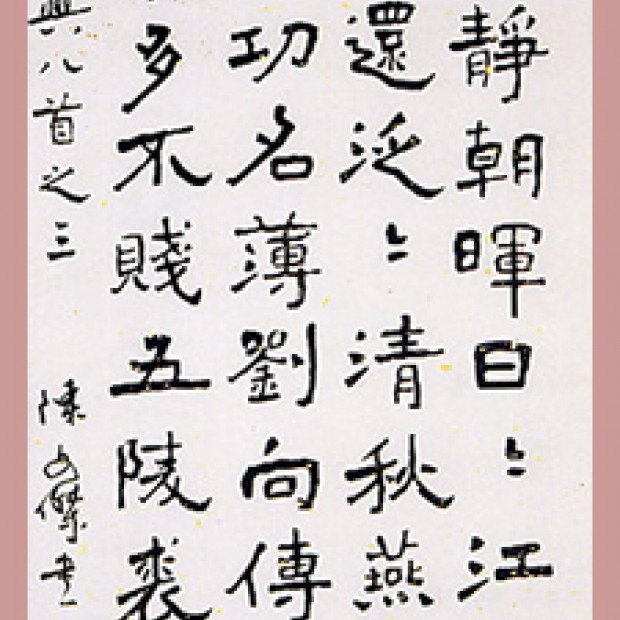 靜朝暉日〻江
還泛〻清秋燕
功名薄劉向傳
多不賤五陵裘
興八首之三
陳文傑書